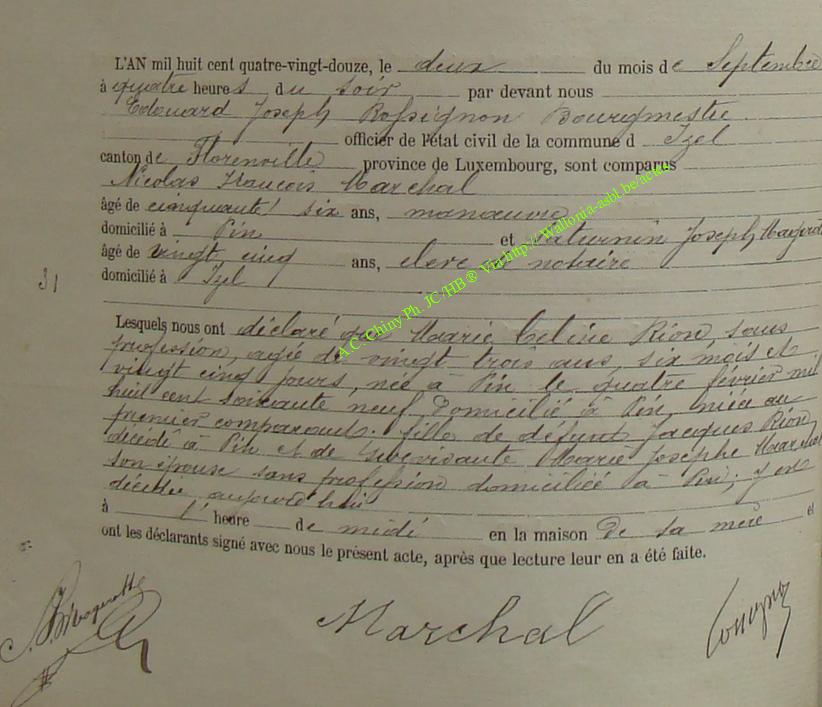 L'AN mil huit cent quatre-vingt-douze, le deux du mois de Septembre
à quatre heures du soir par devant nous
Edouard Joseph Rossignon Bourgmestre
officier de l'état civil de la commune d Izel
canton de Florenville province de Luxembourg, sont comparus
Nicolas François Marchal
âgé de cinquante six ans, manœuvre
domicilié à Pin et Saturnin Joseph
âgé de vingt cinq ans, clerc de notaire
domicilié à Izel
31
Lesquels nous ont déclaré que Marie Celine Rion, sans
profession, agée de vingt trois ans, six mois et
vingt cinq jours, née à Pin le quatre février mil
huit cent soixante neuf, domiciliée à Pin, nièce au
premier comparant, fille de défunt Jacques Rion,
décédé à Pin et de survivante Marie Josephe Marchal
son épouse sans profession domiciliée à Pin; y est
décédée aujourd'hui
à l' heure de midi en la maison de sa mère et
ont les déclarants signé avec nous le présent acte, après que lecture leur en a été faite.
Marchal
A.C. Chiny Ph. JC/HB® Via http://Wallonia-asbl.be/actu